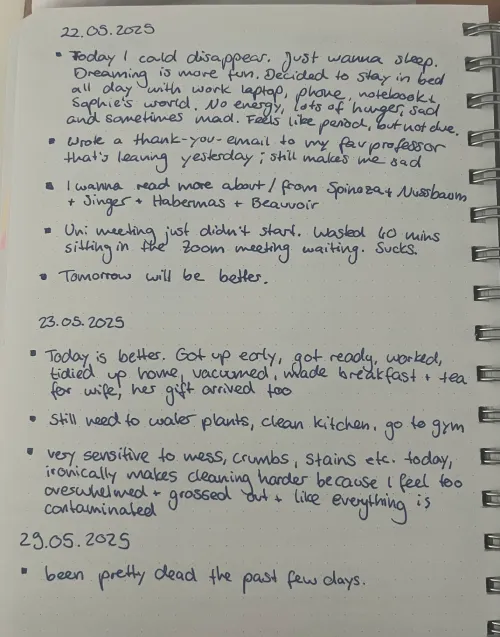 22.05.2025
• Today I could disappear. Just wanna sleep.
Dreaming is more fun. Decided to stay in bed
all day with work laptop, phone, notebook +
Sophie's world. No energy, lots of hunger, sad
and sometimes mad. Feels like period, but not due.
• Wrote a thank-you-email to my fav professor
that's leaving yesterday; still makes me sad
• I wanna read more about/from Spinoza + Nussbaum
+ Singer + Habermas + Beauvoir
• Uni meeting just didn't start. Wasted 40 mins
sitting in the Zoom meeting waiting. Sucks.
• Tomorrow will be better.
23.05.2025
• Today is better. Got up early, got ready, worked,
tidied up home, vacuumed, made breakfast + tea
for wife, her gift arrived too
• Still need to water plants, clean kitchen, go to gym
• very sensitive to mess, crumbs, stains etc. today,
ironically makes cleaning harder because I feel too
overwhelmed + grossed out + like everything is
contaminated
29.05.2025
• been pretty dead the past few days.